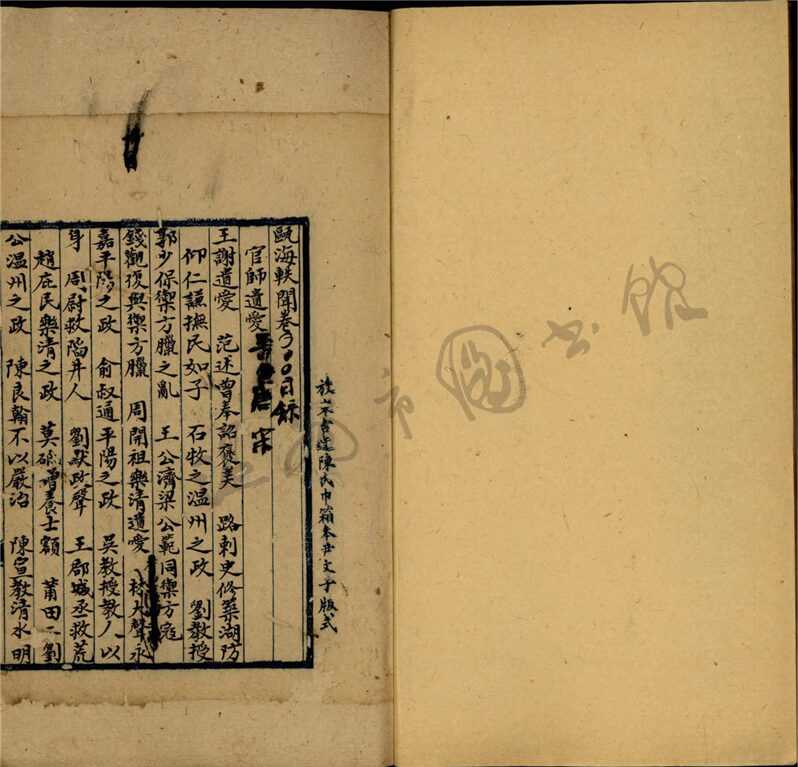 甌海軼聞卷〇〇目錄
官師遺愛 晉 唐 宋
王謝遺愛 范述曾奉詔褒美 路刺史修築湖防
仰仁謙撫民如子 石牧之溫州之政 劉教授
郭少保禦方臘之亂 王公濟梁公範同禦方寇
錢觀復與禦方臘 周開祖樂清遺愛 林大聲永
嘉平陽之政 俞叔通平陽之政 吳教授教人以
身 周尉救陷井人 劉默政聲 王郡城丞救荒
趙庇民樂清之政 莫 增養士額 莆田二劉
公溫州之政 陳良翰不以嚴治 陳宣教清水明
陳氏巾箱本 文子版式
市圖書館